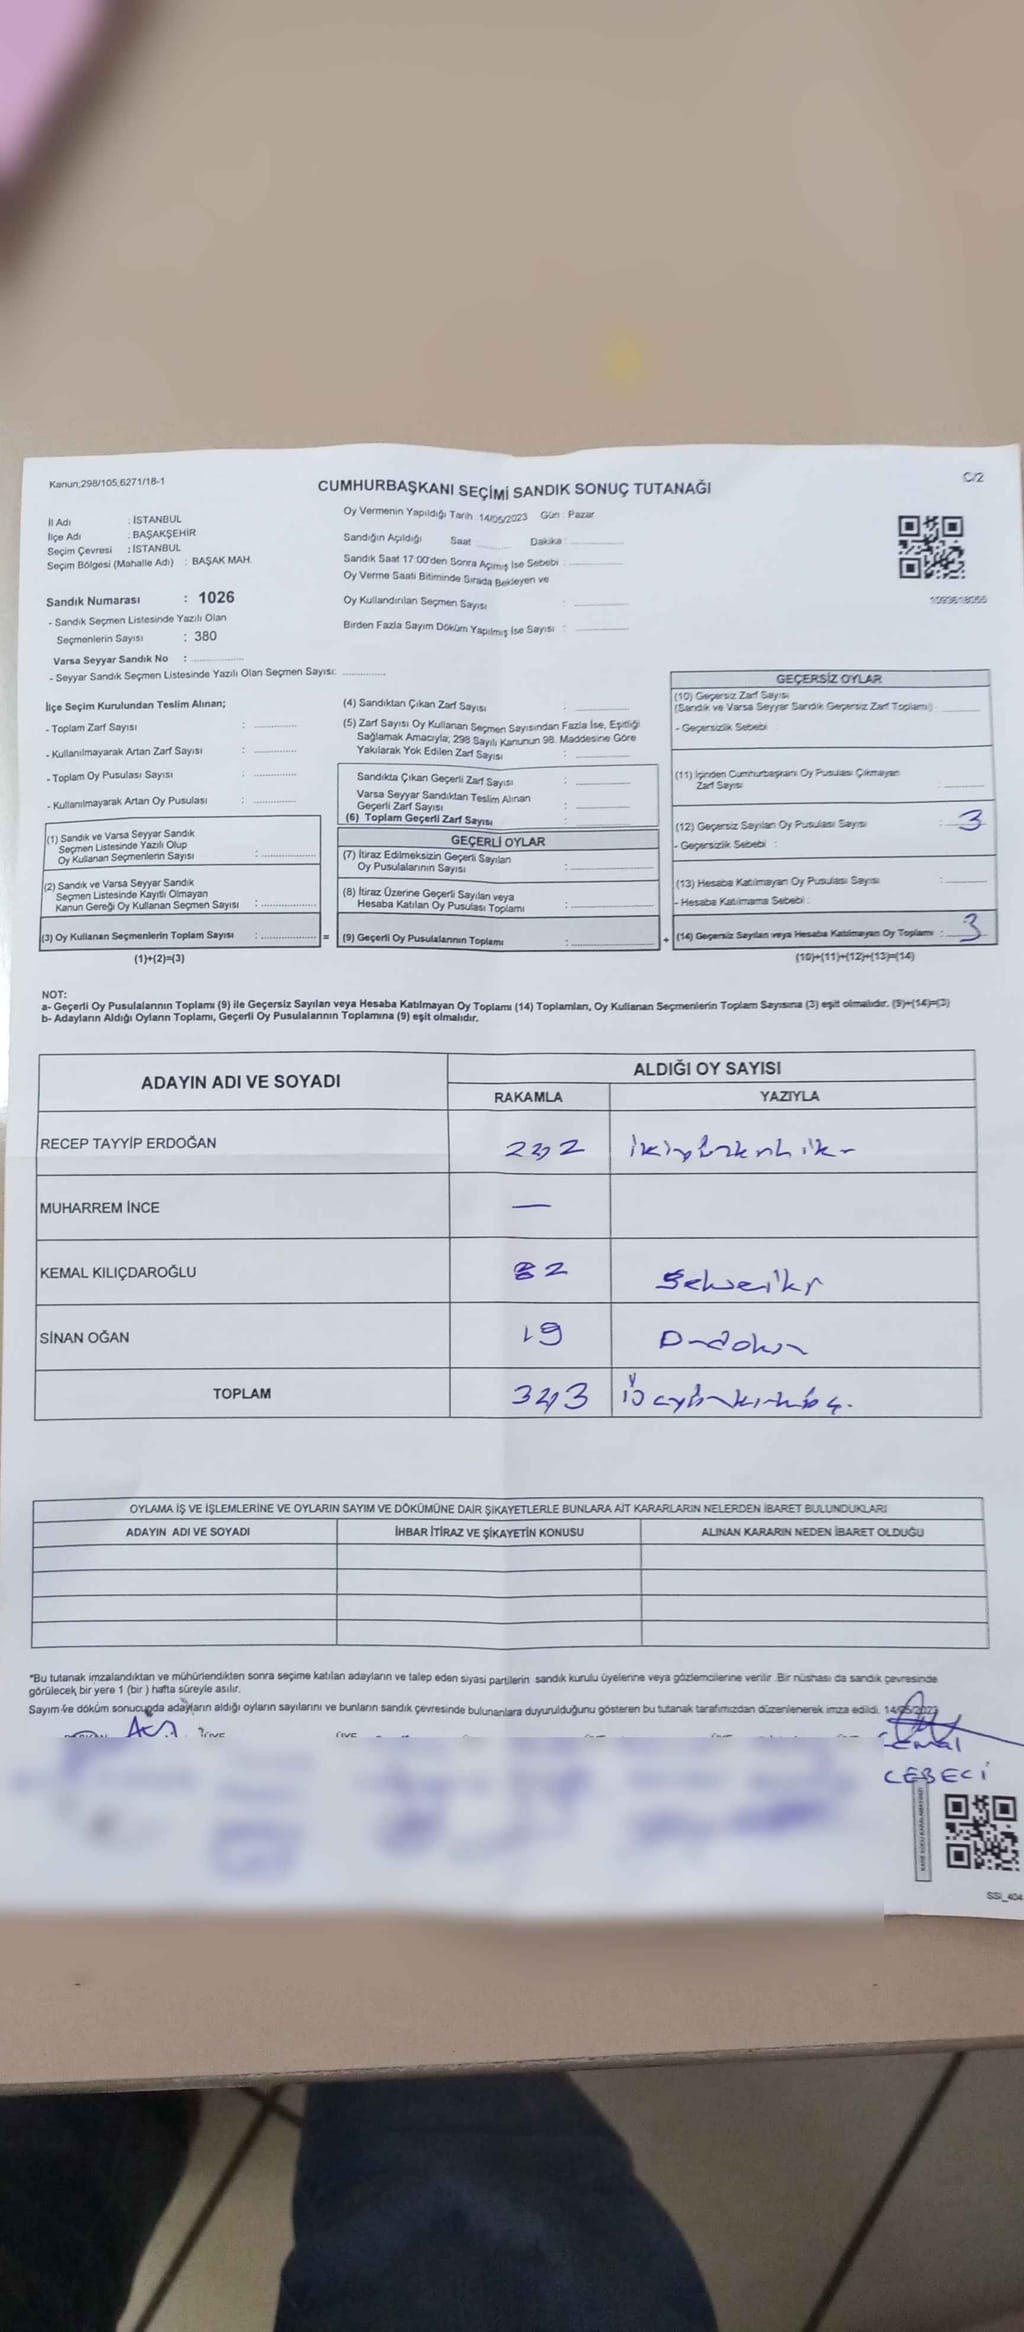 Kanun;298/105,6271/18-1
CUMHURBAŞKANI SEÇİMİ SANDIK SONUÇ TUTANAĞI
C/2
İl Adı : İSTANBUL
İlçe Adı : BAŞAKŞEHİR
Seçim Çevresi : İSTANBUL
Seçim Bölgesi (Mahalle Adı) : BAŞAK MAH.
Sandık Numarası : 1026
- Sandık Seçmen Listesinde Yazılı Olan
Seçmenlerin Sayısı : 380
Varsa Seyyar Sandık No :
- Seyyar Sandık Seçmen Listesinde Yazılı Olan Seçmen Sayısı:
Oy Vermenin Yapıldığı Tarih : 14/05/2023 Gün : Pazar
Sandığın Açıldığı Saat Dakika :
Sandık Saat 17:00'den Sonra Açımış İse Sebebi :
Oy Verme Saati Bitiminde Sırada Bekleyen ve
Oy Kullandırılan Seçmen Sayısı :
Birden Fazla Sayım Döküm Yapılmış İse Sayısı :
1093618055
İlçe Seçim Kurulundan Teslim Alınan;
- Toplam Zarf Sayısı :
- Kullanılmayarak Artan Zarf Sayısı :
- Toplam Oy Pusulası Sayısı :
- Kullanılmayarak Artan Oy Pusulası :
(1) Sandık ve Varsa Seyyar Sandık
Seçmen Listesinde Yazılı Olup
Oy Kullanan Seçmenlerin Sayısı :
(2) Sandık ve Varsa Seyyar Sandık
Seçmen Listesinde Kayıtlı Olmayan
Kanun Gereği Oy Kullanan Seçmen Sayısı :
(3) Oy Kullanan Seçmenlerin Toplam Sayısı : =
(1)+(2)=(3)
(4) Sandıktan Çıkan Zarf Sayısı :
(5) Zarf Sayısı Oy Kullanan Seçmen Sayısından Fazla İse, Eşitliği
Sağlamak Amacıyla; 298 Sayılı Kanunun 98. Maddesine Göre
Yakılarak Yok Edilen Zarf Sayısı :
Sandıkta Çıkan Geçerli Zarf Sayısı :
Varsa Seyyar Sandıktan Teslim Alınan
Geçerli Zarf Sayısı :
(6) Toplam Geçerli Zarf Sayısı :
GEÇERLİ OYLAR
(7) İtiraz Edilmeksizin Geçerli Sayılan
Oy Pusulalarının Sayısı :
(8) İtiraz Üzerine Geçerli Sayılan veya
Hesaba Katılan Oy Pusulası Toplamı :
(9) Geçerli Oy Pusulalarının Toplamı : +
GEÇERSİZ OYLAR
(10) Geçersiz Zarf Sayısı
(Sandık ve Varsa Seyyar Sandık Geçersiz Zarf Toplamı) :
- Geçersizlik Sebebi :
(11) İçinden Cumhurbaşkanı Oy Pusulası Çıkmayan
Zarf Sayısı :
(12) Geçersiz Sayılan Oy Pusulası Sayısı : 3
- Geçersizlik Sebebi :
(13) Hesaba Katılmayan Oy Pusulası Sayısı :
- Hesaba Katılmama Sebebi :
(14) Geçersiz Sayılan veya Hesaba Katılmayan Oy Toplamı : 3
(10)+(11)+(12)+(13)=(14)
NOT:
a- Geçerli Oy Pusulalarının Toplamı (9) ile Geçersiz Sayılan veya Hesaba Katılmayan Oy Toplamı (14) Toplamları, Oy Kullanan Seçmenlerin Toplam Sayısına (3) eşit olmalıdır. (9)+(14)=(3)
b- Adayların Aldığı Oyların Toplamı, Geçerli Oy Pusulalarının Toplamına (9) eşit olmalıdır.
ADAYIN ADI VE SOYADI ALDIĞI OY SAYISI
RAKAMLA YAZIYLA
RECEP TAYYİP ERDOĞAN 242
MUHARREM İNCE —
KEMAL KILIÇDAROĞLU 82
SİNAN OĞAN 19
TOPLAM 343
OYLAMA İŞ VE İŞLEMLERİNE VE OYLARIN SAYIM VE DÖKÜMÜNE DAİR ŞİKAYETLERLE BUNLARA AİT KARARLARIN NELERDEN İBARET BULUNDUKLARI
ADAYIN ADI VE SOYADI İHBAR İTİRAZ VE ŞİKAYETİN KONUSU ALINAN KARARIN NEDEN İBARET OLDUĞU
*Bu tutanak imzalandıktan ve mühürlendikten sonra seçime katılan adayların ve talep eden siyasi partilerin sandık kurulu üyelerine veya gözlemcilerine verilir .Bir nüshası da sandık çevresinde
görülecek bir yere 1 (bir ) hafta süreyle asılır.
Sayım ve döküm sonucunda adayların aldığı oyların sayılarını ve bunların sandık çevresinde bulunanlara duyurulduğunu gösteren bu tutanak tarafımızdan düzenlenerek imza edildi. 14/05/2023
CEBECİ
SSI_404